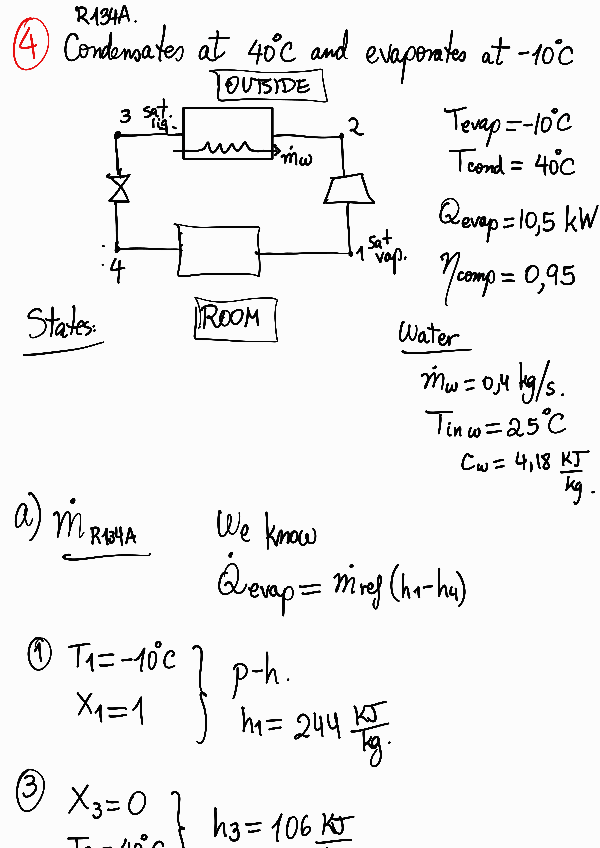 R134A.
④ Condensates at 40°C and evaporates at -10°C
OUTSIDE
3 sat. liq.
2
ṁw
4
1 sat vap.
ROOM
Tevap = -10°C
Tcond = 40°C
Qevap = 10,5 kW
ηcomp = 0,95
States:
Water
ṁw = 0,4 kg/s.
Tin w = 25°C
Cw = 4,18 KJ/kg.
a) ṁ R134A We know
Q̇evap = ṁref (h1-h4)
① T1 = -10°C
X1 = 1
p-h.
h1 = 244 KJ/kg.
③ X3 = 0
h3 = 106 KJ